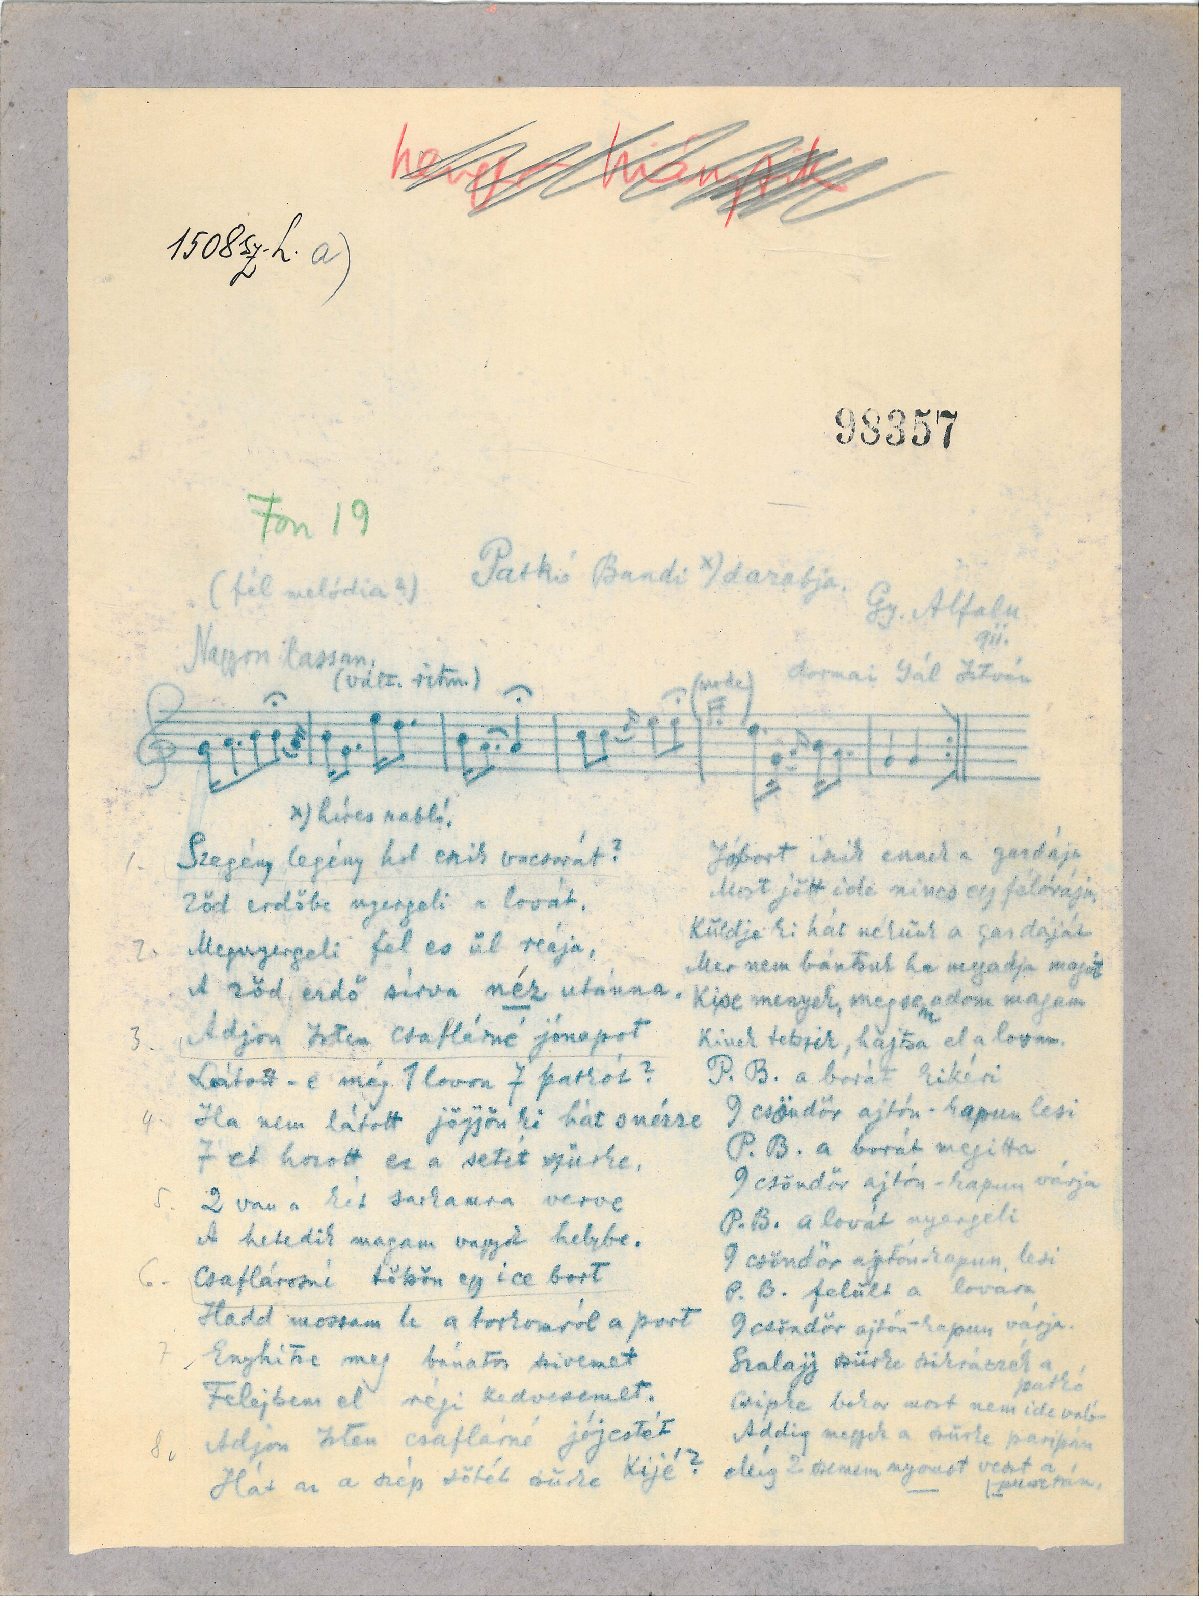 1508 sz. h. a)
98357
Fon 19
Patkó Bandi x) darabja.
(fél melódia?)
Gy. Alfalu
Nagyon lassan.
(vált. ritm.)
dormai Gál István
x) híres rabló.
1. Szegény legény hol eszik vacsorát?
zöd erdőbe nyergeli a lovát.
2. Megnyergeli fel es ül reája,
A zöd erdő sírva néz utánna.
3. Adjon Isten csaflárné jónapot
Látott-e még 1 lovon 7 patkót?
4. Ha nem látott jöjjön ki hát s nézze
7 et hozott ez a setét szürke.
5. 2 van a két sarkamra verve
A hetedik magam vagyok helybe.
6. Csaflárosné töltsön egy ice bort
Hadd mossam le a torkomról a port
7. Enyhítse meg bánatos szivemet
Felejtsem el régi kedvesemet.
8. Adjon Isten csaflárné jójestét
Hát az a szép sötét szürke kijé?
Jóbort iszik ennek a gazdája
Most jött ide nincs egy félórája
Küldje ki hát nékünk a gazdáját
Mer nem bántsuk ha megadja magát
Kisse menyek, megse adom magam
Kinek tetszik, hajtsa el a lovam.
P. B. a borát kikéri
9 csöndör ajtón-kapun lesi
P. B. a borát megitta
9 csöndör ajtón-kapun várja
P. B. a lovát nyergeli
9 csöndör ajtón-kapun lesi
P. B. felült a lovára
9 csöndör ajtón-kapun várja.
Szalajj szürke szikrázzék a
patkó
Csipke bokor most nem ide való
Addig megyek a szürke paripán
Míg 2 szemem nyomot veszt a
pusztán.